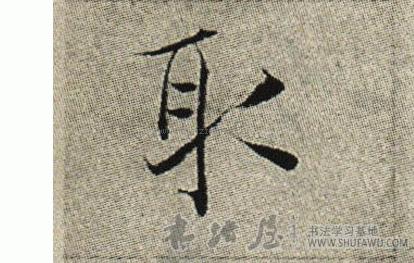 取
书法屋 书法学习基地
WWW.SHUFAWU.COM